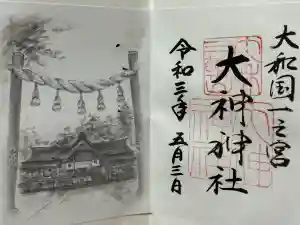 大和国一之宮
大神神社
令和三年 五月三日